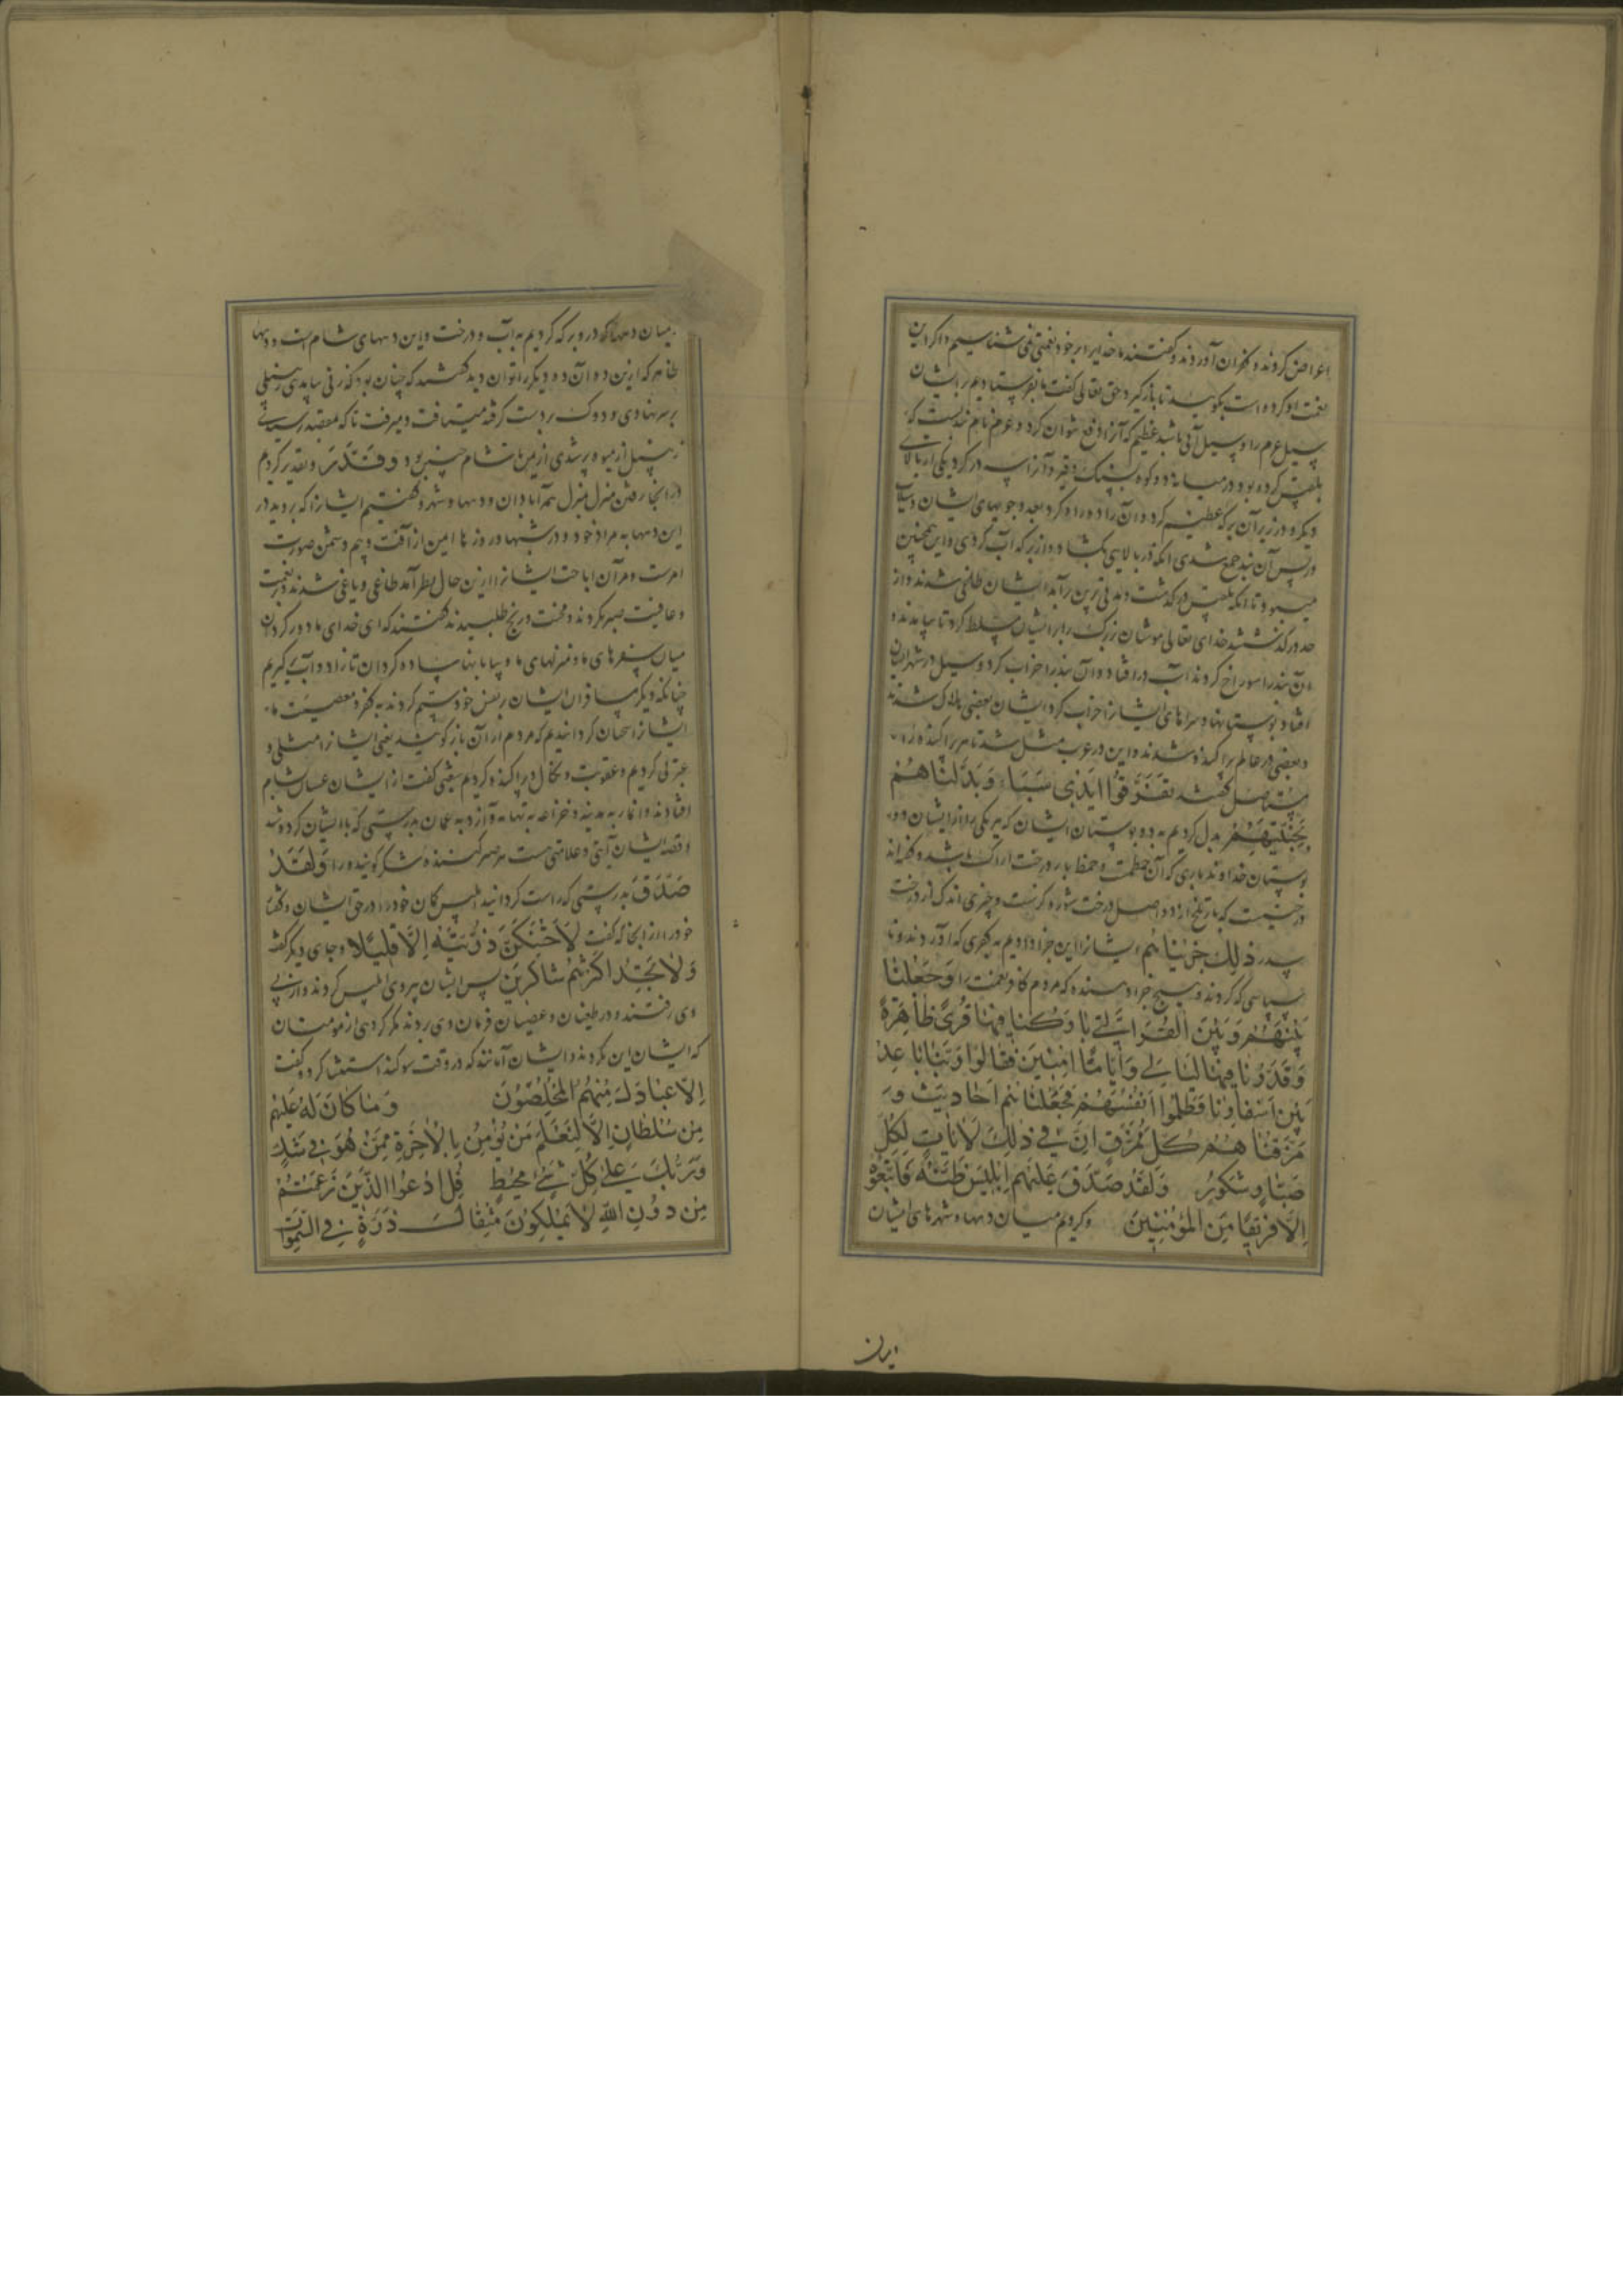 اعراض کردند و کفران آوردند و گفتند ما خدایرا بر خود نعمتی نمی شناسیم و اگر این
نعمت او کرده است بگویید تا باز گیرد حق تعالی گفت ما بفرستادیم بر ایشان
سیل عرم را و سیل آبی باشد عظیم که آنرا دفع نتوان کرد و عرم نام بندیست که
بلقیس کرده بود در میانه دو کوه بسنگ و قیر و آنرا سه در کرد یکی از بالای
دیگر و در زیر آن برکه عظیم کرد و آن را دوازده در کرد بعدد جویهای ایشان و سیلاب
در پس آن بند جمع شدی آنگه در بالایین بگشادی و از برکه آب گرفتی و این همچنین
میبود تا آنکه بلقیس در گذشت و مدتی برین برآمد ایشان طاغی شدند و از
حد در گذشتند خدای تعالی موشان بزرگ را بر ایشان مسلط کرد تا بیامدند و
آن بند را سوراخ کردند آب در افتاد و آن بند را خراب کرد و سیل در شهر ایشان
افتاد و بوستانها و سراهای ایشانرا خراب کرد ایشان بعضی هلاک شدند
و بعضی در عالم پراکنده شدند و این در عرب مثل شد تا هر پراکنده را
مستاصل گفتند تَفَرَّقُوا اَیْدِی سَبَا وَبَدَّلْنَاهُمْ
بِجَنَّتَیْهِمْ بدل کردیم به دو بوستان ایشان که هر یکی را از ایشان دو
بوستان خداوند باری که آن خمط است و خمط بار درخت اراک باشد و گفته اند
درختیست که بار تلخ دارد و اصل درخت شوره گز است و چیزی اندک از درخت
سدر ذٰلِكَ جَزَیْنَاهُمْ ایشانرا این جزا دادیم به کفری که آوردند و نا
سپاسی که کردند و هیچ جزا دهنده که مردم کافر نعمت را وَجَعَلْنَا
بَیْنَهُمْ وَبَیْنَ الْقُرَی الَّتِی بَارَكْنَا فِیهَا قُرًی ظَاهِرَةً
وَقَدَّرْنَا فِیهَا لَیَالِیَ وَاَیَّامًا آمِنِینَ فَقَالُوا رَبَّنَا بَاعِدْ
بَیْنَ اَسْفَارِنَا وَظَلَمُوا اَنْفُسَهُمْ فَجَعَلْنَاهُمْ اَحَادِیثَ وَ
مَزَّقْنَاهُمْ كُلَّ مُمَزَّقٍ اِنَّ فِی ذٰلِكَ لَاٰیَاتٍ لِكُلِّ
صَبَّارٍ شَكُورٍ وَلَقَدْ صَدَّقَ عَلَیْهِمْ اِبْلِیسُ ظَنَّهُ فَاتَّبَعُوهُ
اِلَّا فَرِیقًا مِنَ الْمُؤْمِنِینَ و کردیم میان دیهها و شهرهای ایشان
میان دیهها که در و برکه کردیم به آب و درخت و این دیههای شام است و دیهها
ظاهر که ازین ده آن ده دیگر را توان دید گفتند که چنان بود که زنی بیامدی زنبیلی
بر سر نهادی و دوک بر دست گرفته میتافت و میرفت تا که بمقصد رسیدی
زنبیل از میوه پر شدی از یمن تا شام چنین بود وَقَدَّرَ و تقدیر کردم
در آنجا رفتن منزل منزل همه آبادان و دیهها و شهر و گفتیم ایشانرا که بروید در
این دیهها به مراد خود و در شبها و در روزها ایمن از آفت و بیم دشمن صورت
امرست و مراد آن اباحت ایشانرا ازین حال بطر آمد طاغی و باغی شدند و بر نعمت
و عافیت صبر نکردند و محنت و رنج طلبیدند گفتند که ای خدای ما دور گردان
میان سفرهای ما و منزلهای ما و بیابانها پیاده گردان تا زاد و آب گیریم
چنانکه دیگر مسافران ایشان بر نفس خود ستم کردند به کفر و معصیت ما
ایشانرا سخنان گردانیدیم که مردم از آن باز گویند یعنی ایشانرا مثلی و
عبرتی کردیم و عقوبت و نکال و پراکنده کردیم شعبی گفت از ایشان غسان بشام
افتادند و انمار به مدینه و خزاعه به تهامه و ازد به عمان بدرستی که با ایشان کرده شد
و قصه ایشان آیتی و علامتی هست هر صبر کننده شکر گوینده را وَلَقَدْ
صَدَّقَ بدرستی که راست گردانید ابلیس گمان خود را در حق ایشان و گفتار
خود را از آنجا که گفت لَاَحْتَنِكَنَّ ذُرِّیَّتَهُ اِلَّا قَلِیلًا و جای دیگر گفته
وَلَا تَجِدُ اَكْثَرَهُمْ شَاكِرِینَ پس ایشان پیروی ابلیس کردند و از پی
وی رفتند و در طغیان و عصیان فرمان وی بردند مگر گروهی از مومنان
که ایشان این نکردند و ایشان آنانند که در وقت سوگند استثنا کرد و گفت
اِلَّا عِبَادَكَ مِنْهُمُ الْمُخْلَصُونَ وَمَا كَانَ لَهُ عَلَیْهِمْ
مِنْ سُلْطَانٍ اِلَّا لِنَعْلَمَ مَنْ یُؤْمِنُ بِالْاٰخِرَةِ مِمَّنْ هُوَ فِی شَكٍّ
وَرَبُّكَ عَلٰی كُلِّ شَیْءٍ مُحِیطٌ قُلِ ادْعُوا الَّذِینَ زَعَمْتُمْ
مِنْ دُونِ اللّٰهِ لَا یَمْلِكُونَ مِثْقَالَ ذَرَّةٍ فِی السَّمٰوَاتِ